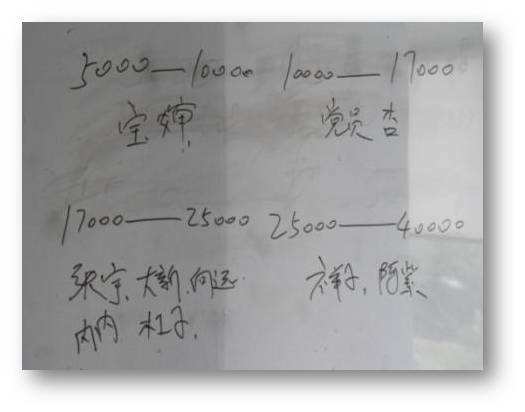 5000—10000 10000—17000
宝婵 党员 杏
17000——25000 25000——40000
张宇、大新、向远 祥子、阿紫
内内 杜子、